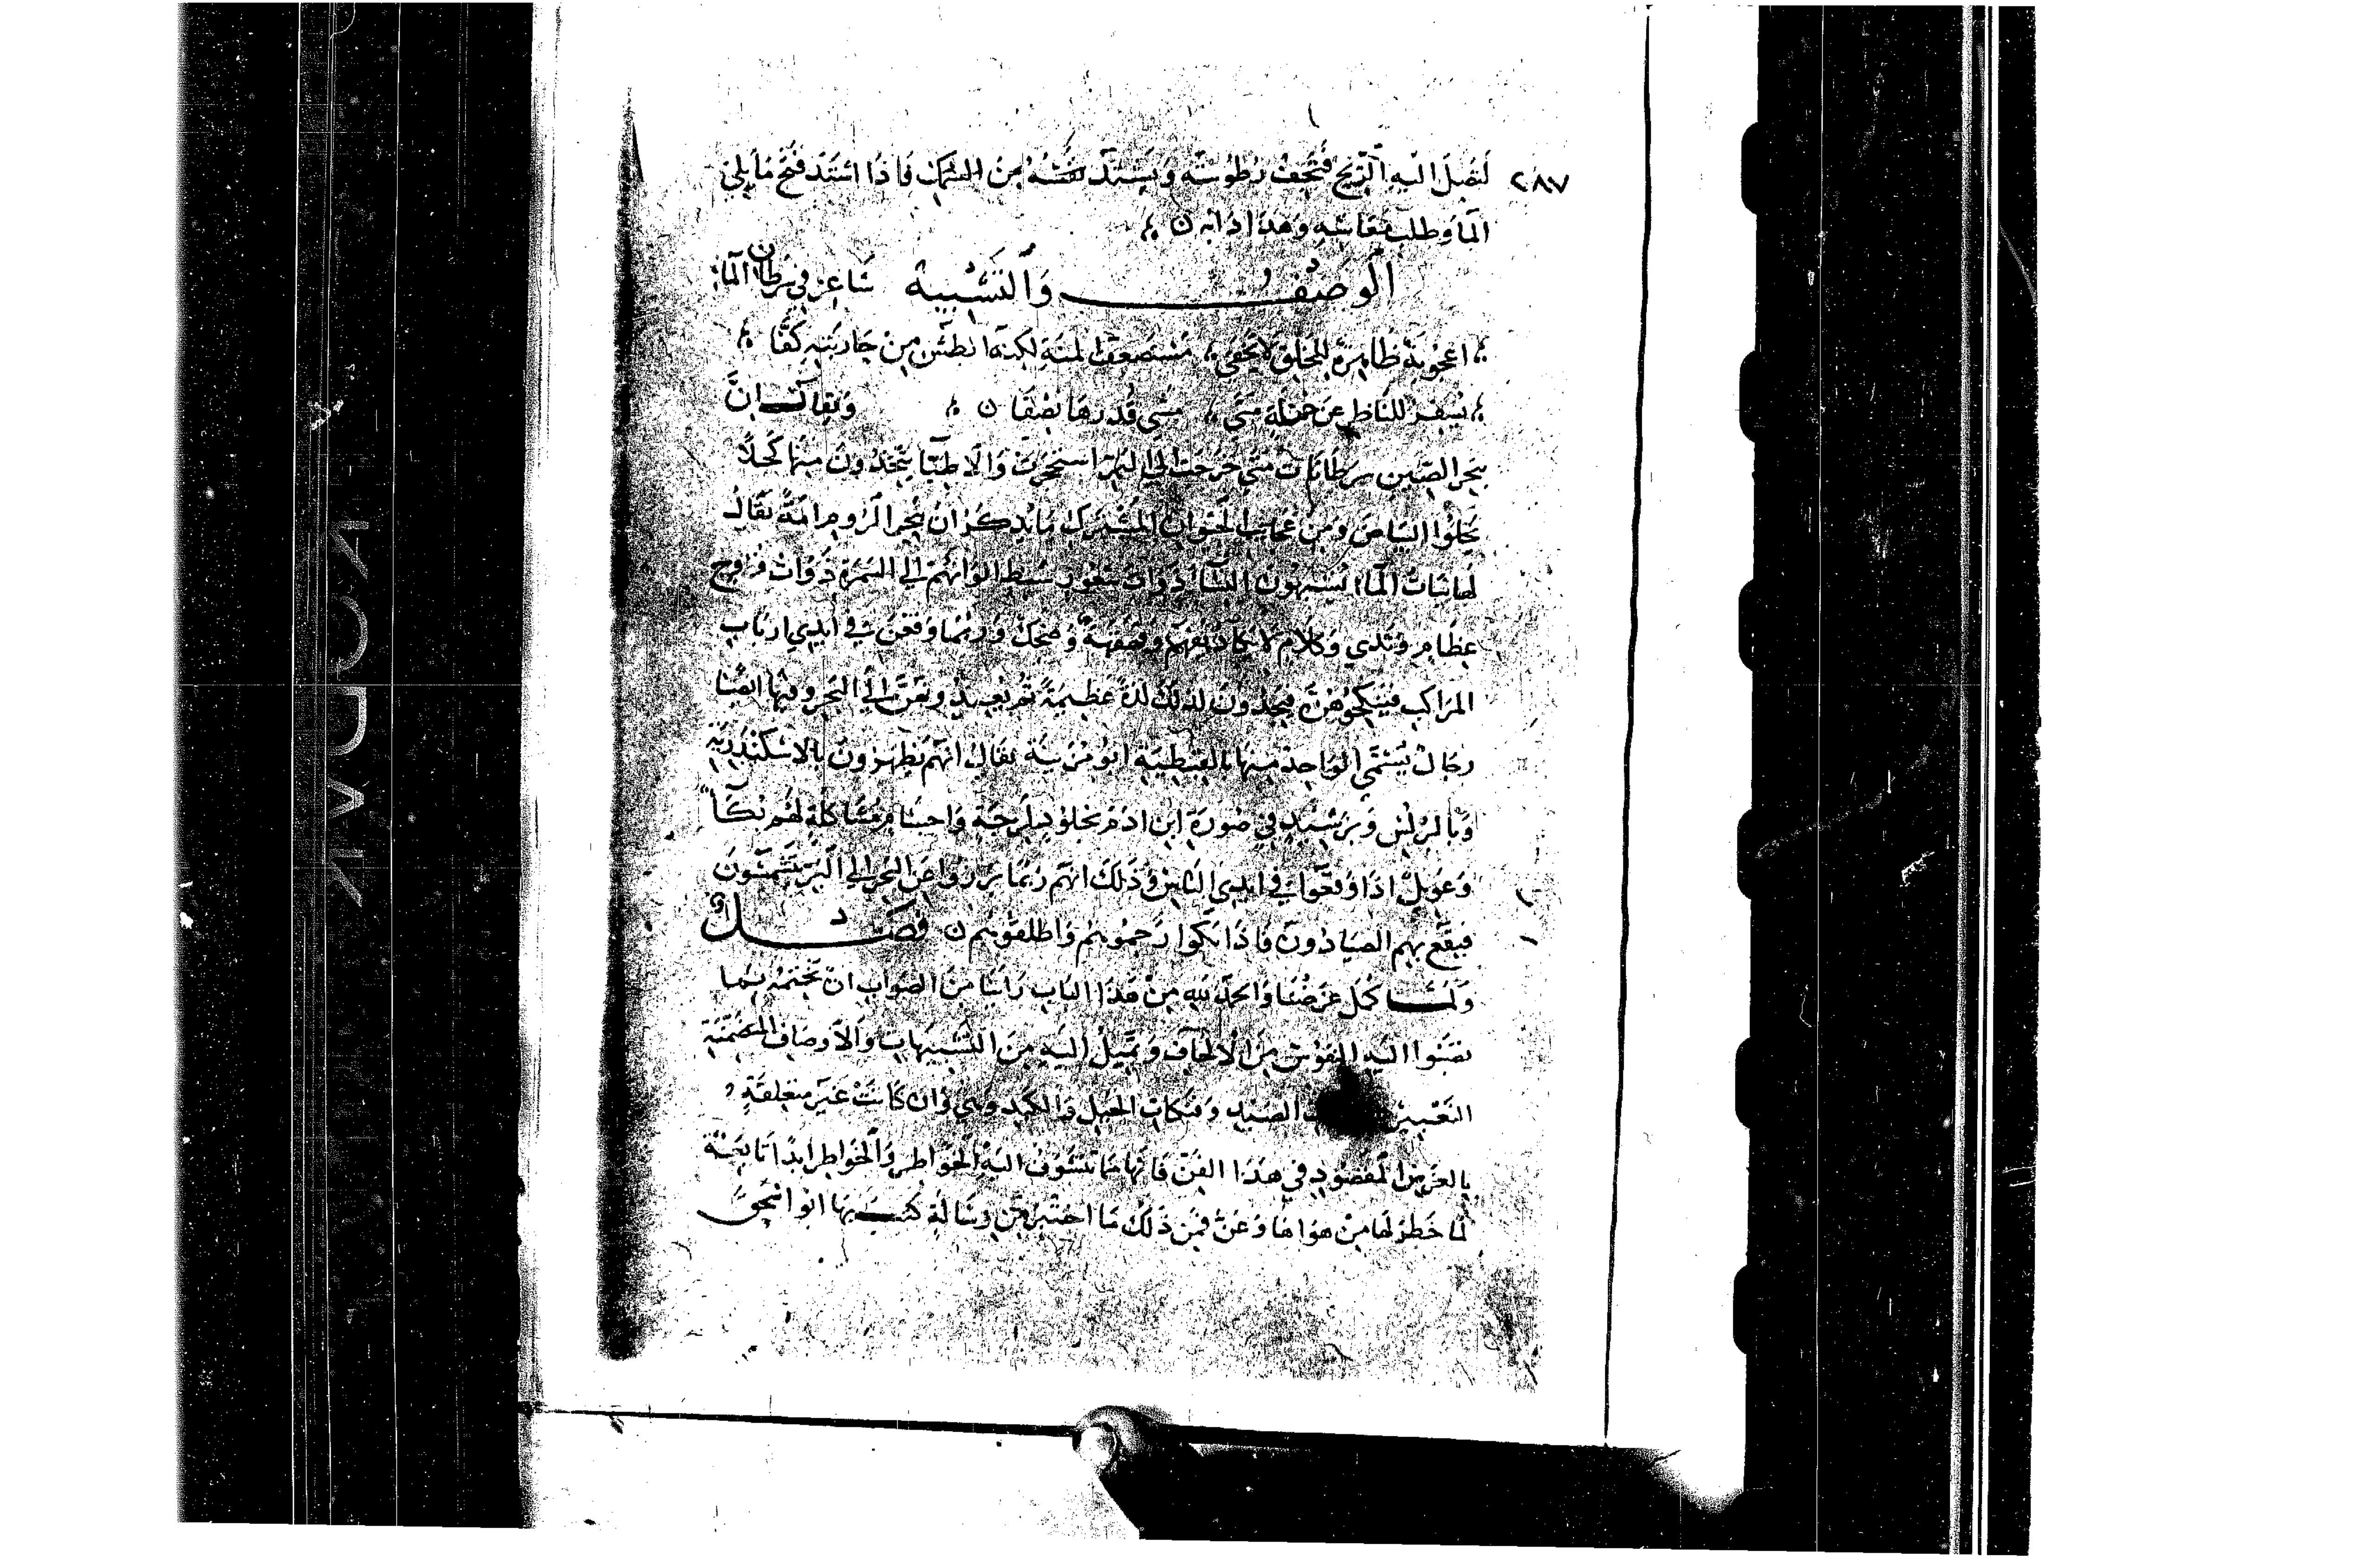 ٢٨٧
لتصل اليه الريح فتجف رطوبته ويستد نفسه من السمك فاذا اشتد فتح ما يلي
الما وطلب معاشه وهذا دابه ن
الوصف والتشبيه شاعر في سرطان الما
اعجوبة ظاهرة للخلق لا تخفى مستضعف المنة لكنه ابطش من جاريته كفا
يسفر للناظر عن جملة متى مشى قدرها نصفا ن ويقال ان
ببحر الصين سرطانات متى خرجت الى البر استحجرت والاطبا يتخذون منها كحلا
يجلوا البياض ومن عجايب الحيوان المشترك ما يذكر ان ببحر الروم امة يقال
لها بنات الما يشبهون النسا ذوات شعور سبط الوانهم الى السمرة ذوات فروج
عظام وثدي وكلام لا يكاد يفهم وقهقهة وضحك وربما وقعن في ايدي ارباب
المراكب فينكحوهن فيجدون لذلك لذة عظيمة ثم يعيدونهن الى البحر وفيها ايضا
رجال يسمى الواحد منها بالقبطية ابو مرينة يقال انهم يظهرون بالاسكندرية
وبالبرلس وبرشيد في صورة ابن ادم بجلود لزجة واجسام مشاكلة لهم بكا
وعويل اذا وقعوا في ايدي الناس وذلك انهم ربما برزوا عن البحر الى البر يتشمسون
فيقع بهم الصيادون فاذا بكوا رحموهم واطلقوهم ن فصل
ولما كمل غرضنا والحمد لله من هذا الباب راينا من الصواب ان نختمه بما
تصبوا اليه النفوس من الالحاف وتميل اليه من التشبيهات والاوصاف المضمنة
التعبير الصيد ومنكات الحيل والكيد وهي وان كانت غير متعلقة
بالغرض المقصود في هذا الفن فانها مما تتشوف اليه الخواطر والخواطر ابدا تابعة
لما خطر لها من هواها وعن فمن ذلك ما اختير من رسالة كتب بها ابو اسحق